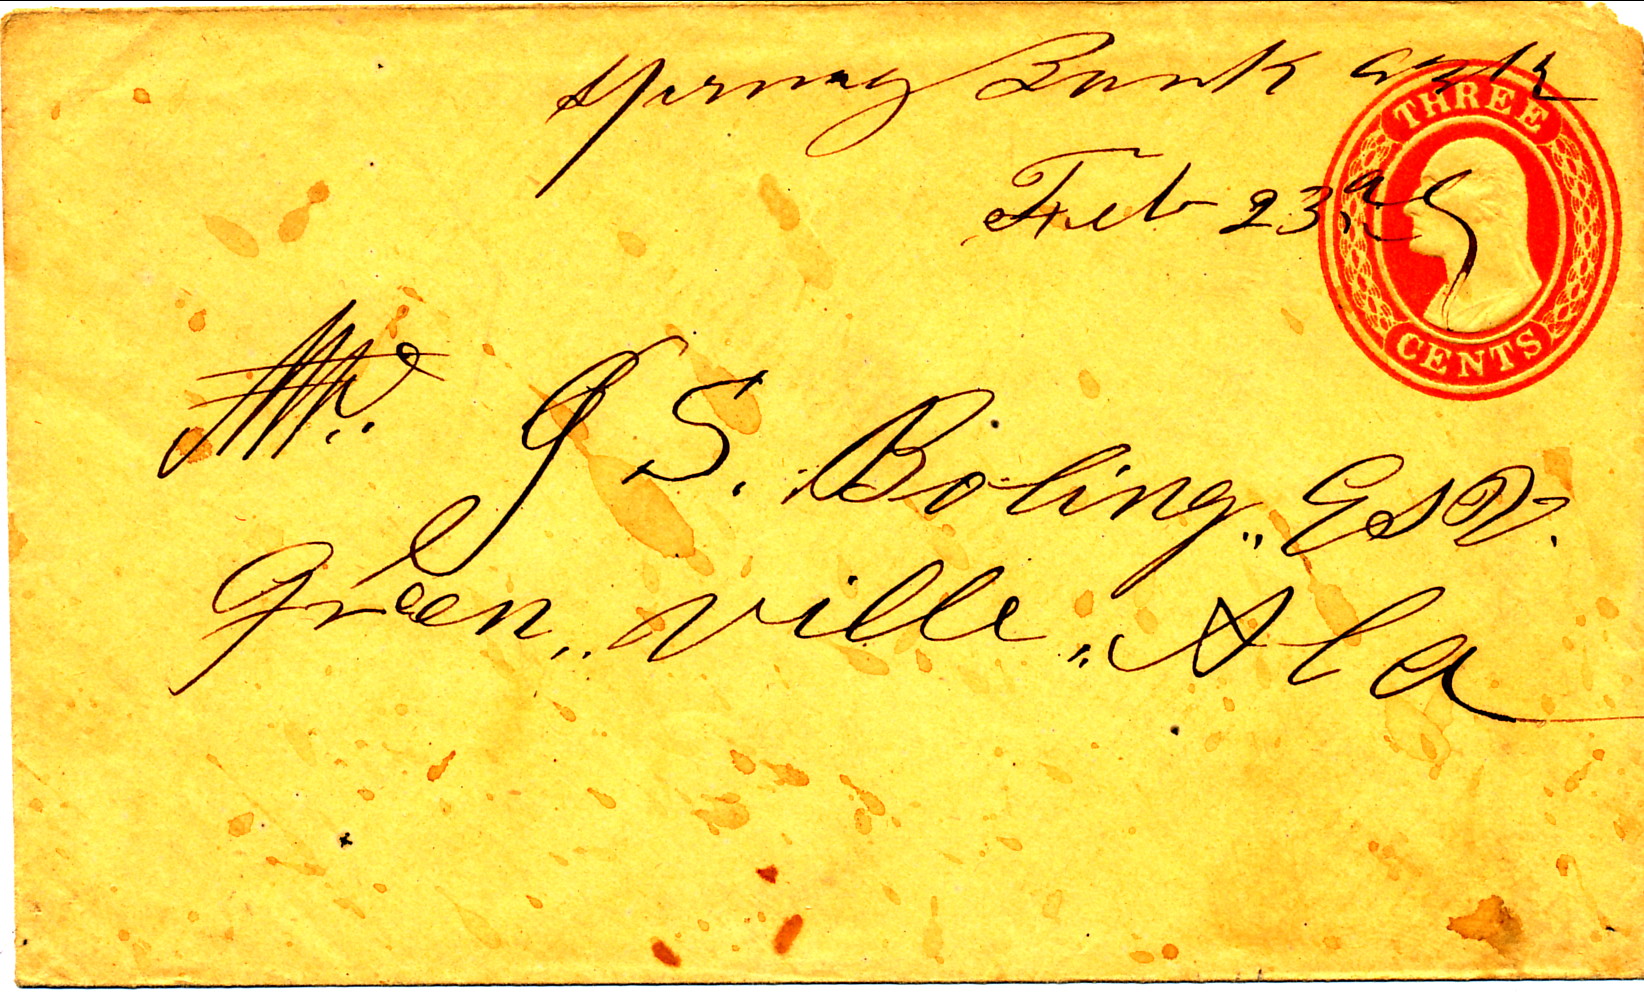 Spring Bank Ark
THREE
Feb 23rd
CENTS
Mr. J S. Boling,, Esqr.
Green,, ville,, Ala